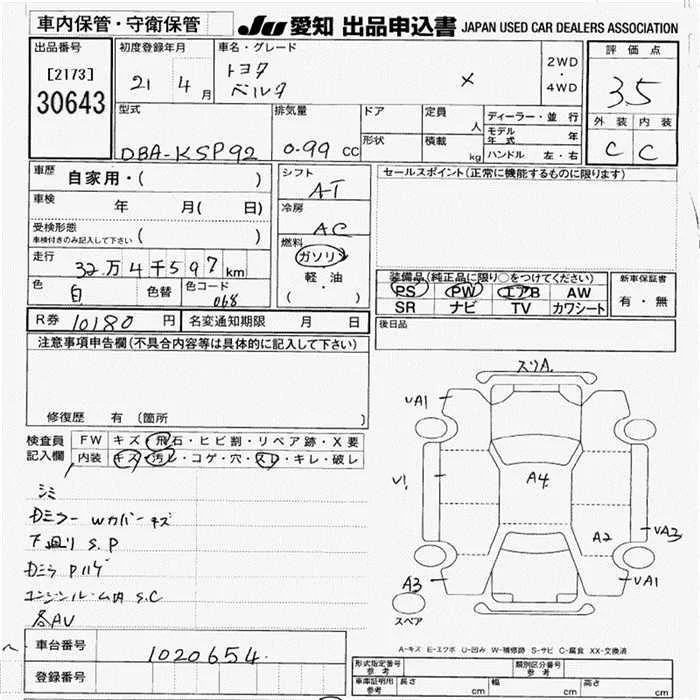 車内保管・守衛保管
JU 愛知 出品申込書 JAPAN USED CAR DEALERS ASSOCIATION
出品番号
[2173]
30643
初度登録年月
21 4月
車名・グレード
トヨタ
ベルタ
×
2WD
・
4WD
評価点
3.5
外装 内装
C C
型式
DBA-KSP92
排気量
0.99 CC
ドア
形状
定員
人
積載
kg
ディーラー・並行
モデル年式 年
ハンドル 左・右
車歴 自家用・( )
車検 年 月( 日)
受検形態
車検付きのみ記入して下さい ( )
走行 32万4千597km
色 白 色替 色コード 068
シフト
AT
冷房
AC
燃料
ガソリン
軽・油
( )
セールスポイント(正常に機能するものに限ります)
装備品(純正品に限り○をつけてください)
PS PW エアB AW
SR ナビ TV カワシート
新車保証書
有・無
R券 10180円 名変通知期限 月 日
後日品
注意事項申告欄(不具合内容等は具体的に記入して下さい)
修復歴 有 (箇所 )
検査員
記入欄
FW キズ・飛石・ヒビ割・リペア跡・X要
内装 キズ・汚レ・コゲ・穴・スレ・キレ・破レ
シミ
Dミラー Wカバーキズ
下廻り S.P
Dミラ Pハゲ
エンジンルーム内 S.C
各AU
スリA
UA1
U1
A4
A2
UA3
UA1
A3
スペア
A-キズ E-エクボ U-凹み W-補修跡 S-サビ C-腐食 XX-交換済
車台番号 1020654
登録番号
形式指定番号
参考
類別区分番号
参考
車庫証明用
参考
長さ cm 幅 cm 高さ cm